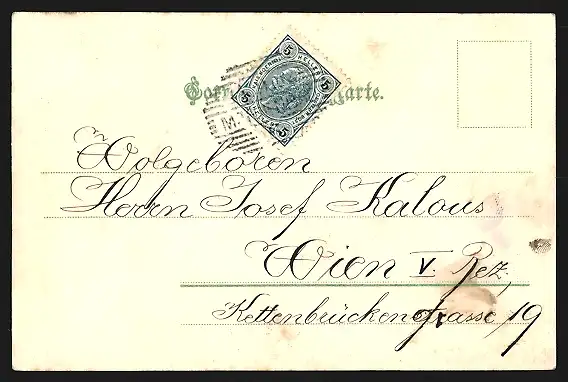 5 HELLER 5
5 5
Wolgeboren
Herrn Josef Kalous
Wien V. Bez.,
Kettenbrückengasse, 19